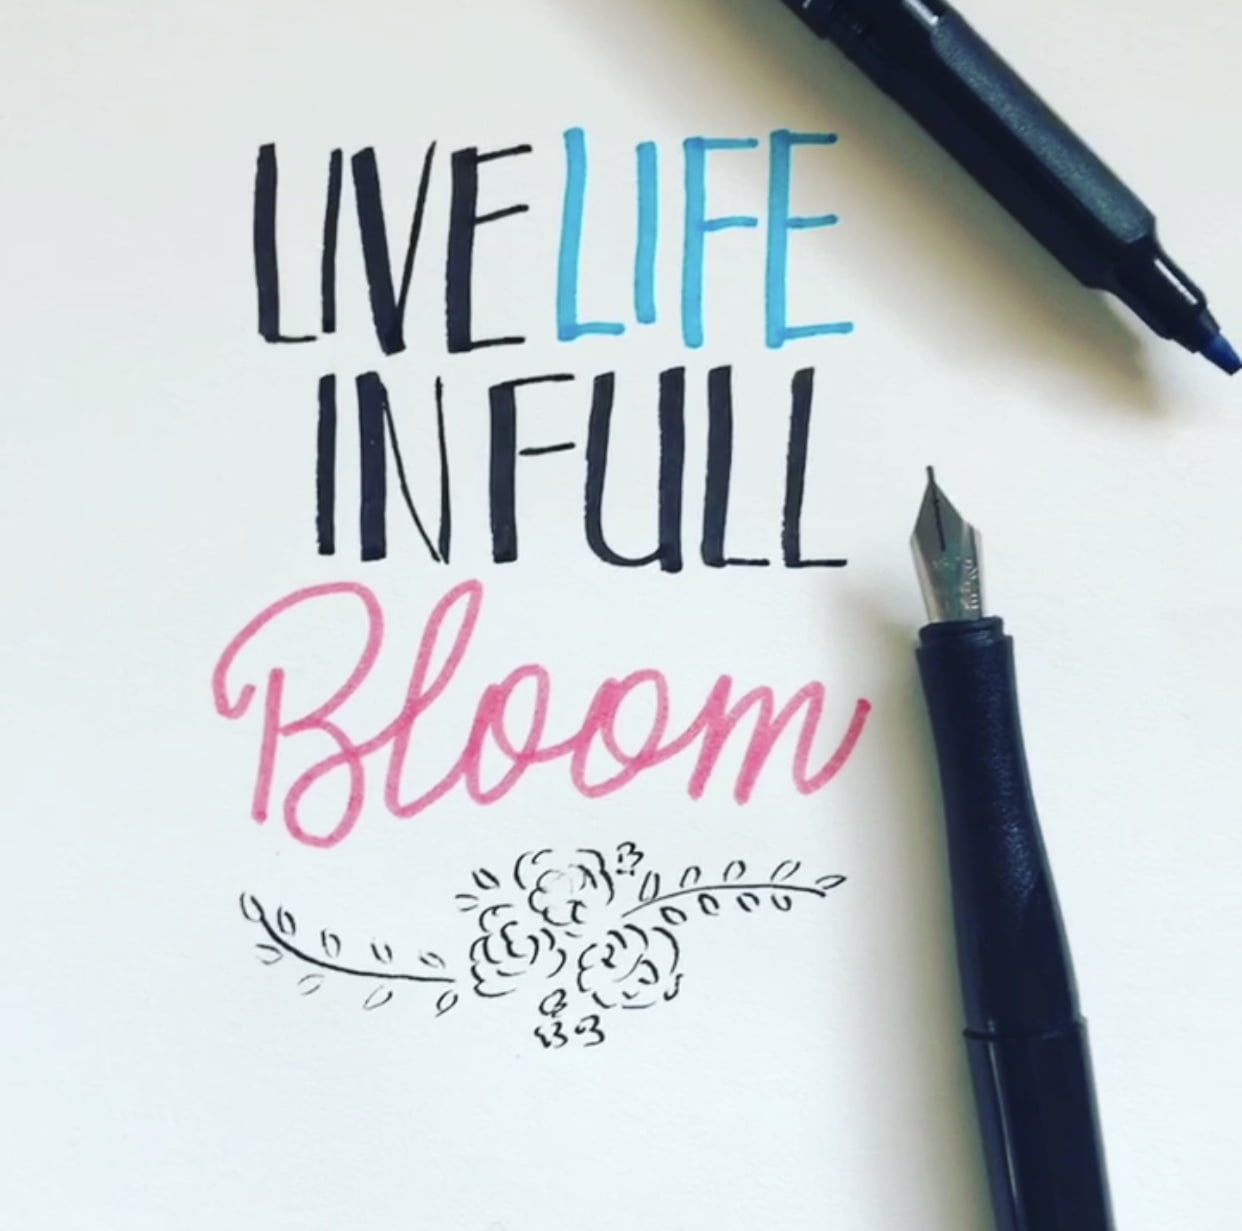 LIVE LIFE
IN FULL
Bloom